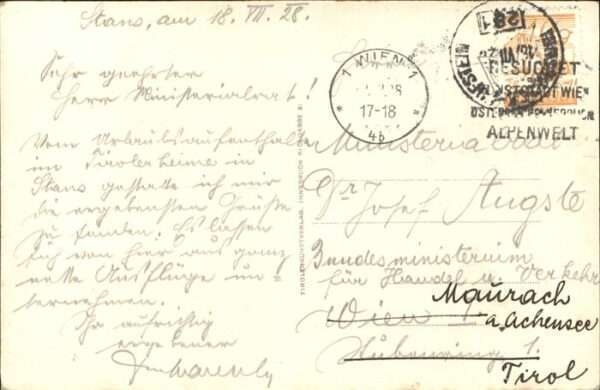 Stans, am 18. VII. 28.
Sehr geehrter
Herr Ministerialrat!
Vom Urlaubsaufenthalte
im Tirolerheime in
Stans gestatte ich mir
die ergebensten Grüße
zu senden. Es liessen
sich von hier aus ganz
nette Ausflüge un=
ternehmen.
Ihr aufrichtig
ergebener
1 WIEN 1
17-18
* 4b *
281
BESUCHET
KUNSTSTADT WIEN
ALPENWELT
Ministerialrat
Dr Josef Augste
Bundesministerium
für Handel u. Verkehr
Wien I
Stubenring 1
Maurach
a. Achensee
Tirol